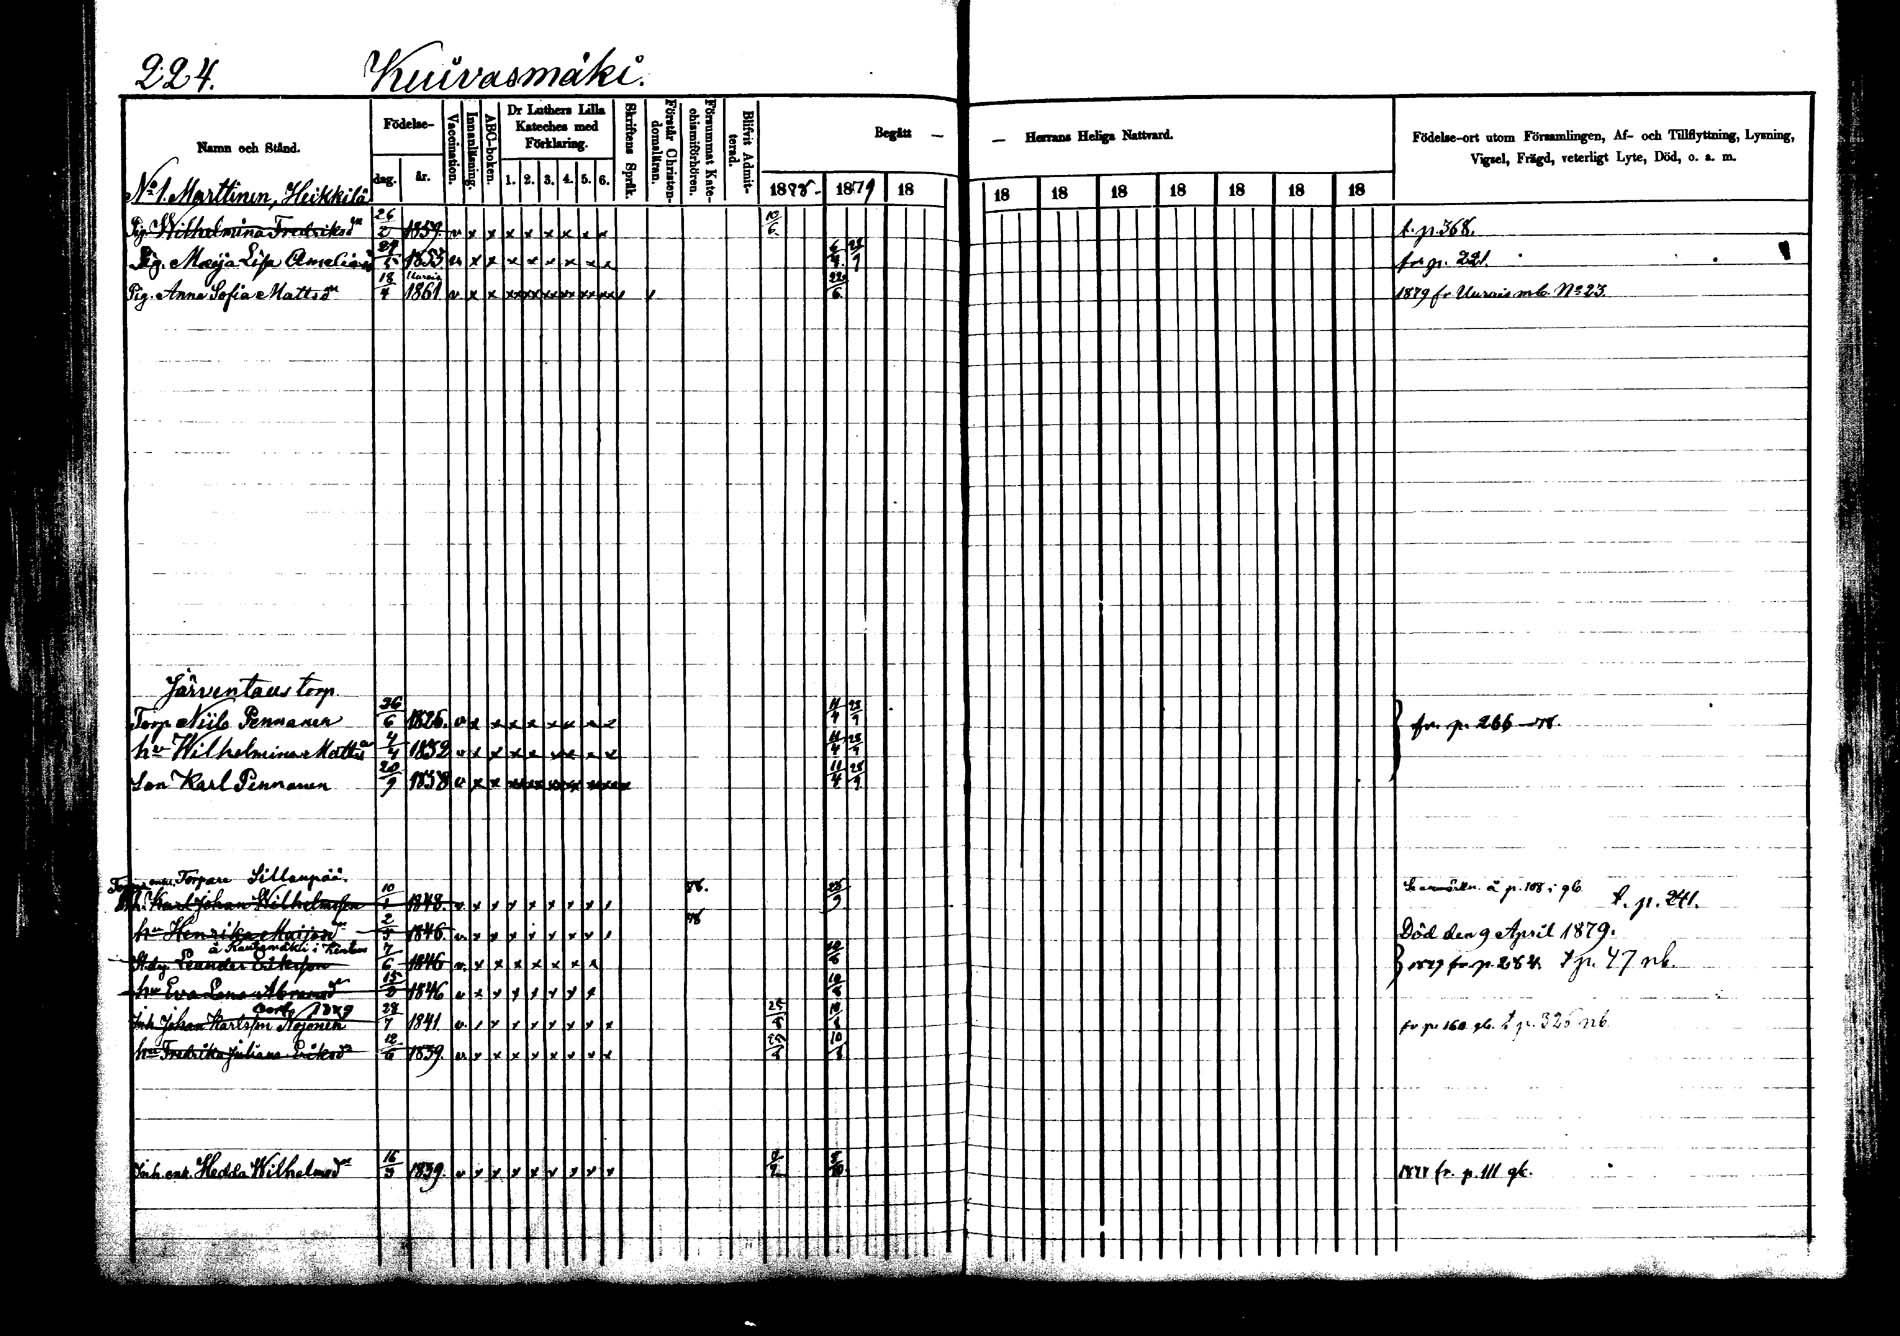 224. Kuivasmäki.
Namn och Stånd. Födelse- dag. år. Vaccination. Innanläsning. ABC-boken. Dr Luthers Lilla Kateches med Förklaring. 1. 2. 3. 4. 5. 6. Skriftens Språk. Förstår Christendomsläran. Försummat Katechismiförhören. Blifvit Admitterad. Begått — — Herrans Heliga Nattvard. Födelse-ort utom Församlingen, Af- och Tillflyttning, Lysning, Vigsel, Frägd, veterligt Lyte, Död, o. s. m.
1878 1879 18 18 18 18 18 18 18 18
No 1. Marttinen, Heikkilä
Pig. Wilhelmina Fredriksdr 26/2 1859. v x x x x x x x x 10/6 t. p. 368.
Pig. Maija Lisa Amelia 1853 v x x x x x x x x fr p. 221.
Pig. Anna Sofia Mattsdr 18/4 Uurais 1861 v x x 22/6 1879 fr Uurais mb. No 23.
Järventaus torp.
Torp Niilo Pennanen 26/6 1826. v x x x x x x x x fr. p. 266
hu Wilhelmina Mattsdr 4/4 1832 v x x x x x x x x
Son Karl Pennanen 20/9 1858 v x x 11/4
Torpare Sillanpää.
Karl Johan Wilhelmsson 10/1 1848. v x x x x x x x 78. 25/9 p. 108 i gb. t. p. 241.
hu Henrika Maijasdr 2/5 1846. v x x x x x x x 78 Död den 9 April 1879.
Leander Eriksson 7/6 1846 v. x x x x x x x 10/8 1879 fr p. 284. t p. 47 nb.
hu Eva Lena Abramsdr 1846 v x x x x x x x 10/8
Inh. Johan Karlsson Nojonen 7 1841 v x x x x x x x 25/8 10/8 fr p. 160 gb. t p. 325 nb.
hu Fredrika Juliana Eriksdr 12/6 1839. v x x x x x x x 10/8
Inh. enk. Hedda Wilhelmsdr 16/3 1839. v x x x x x x x fr. p. 111 gb.